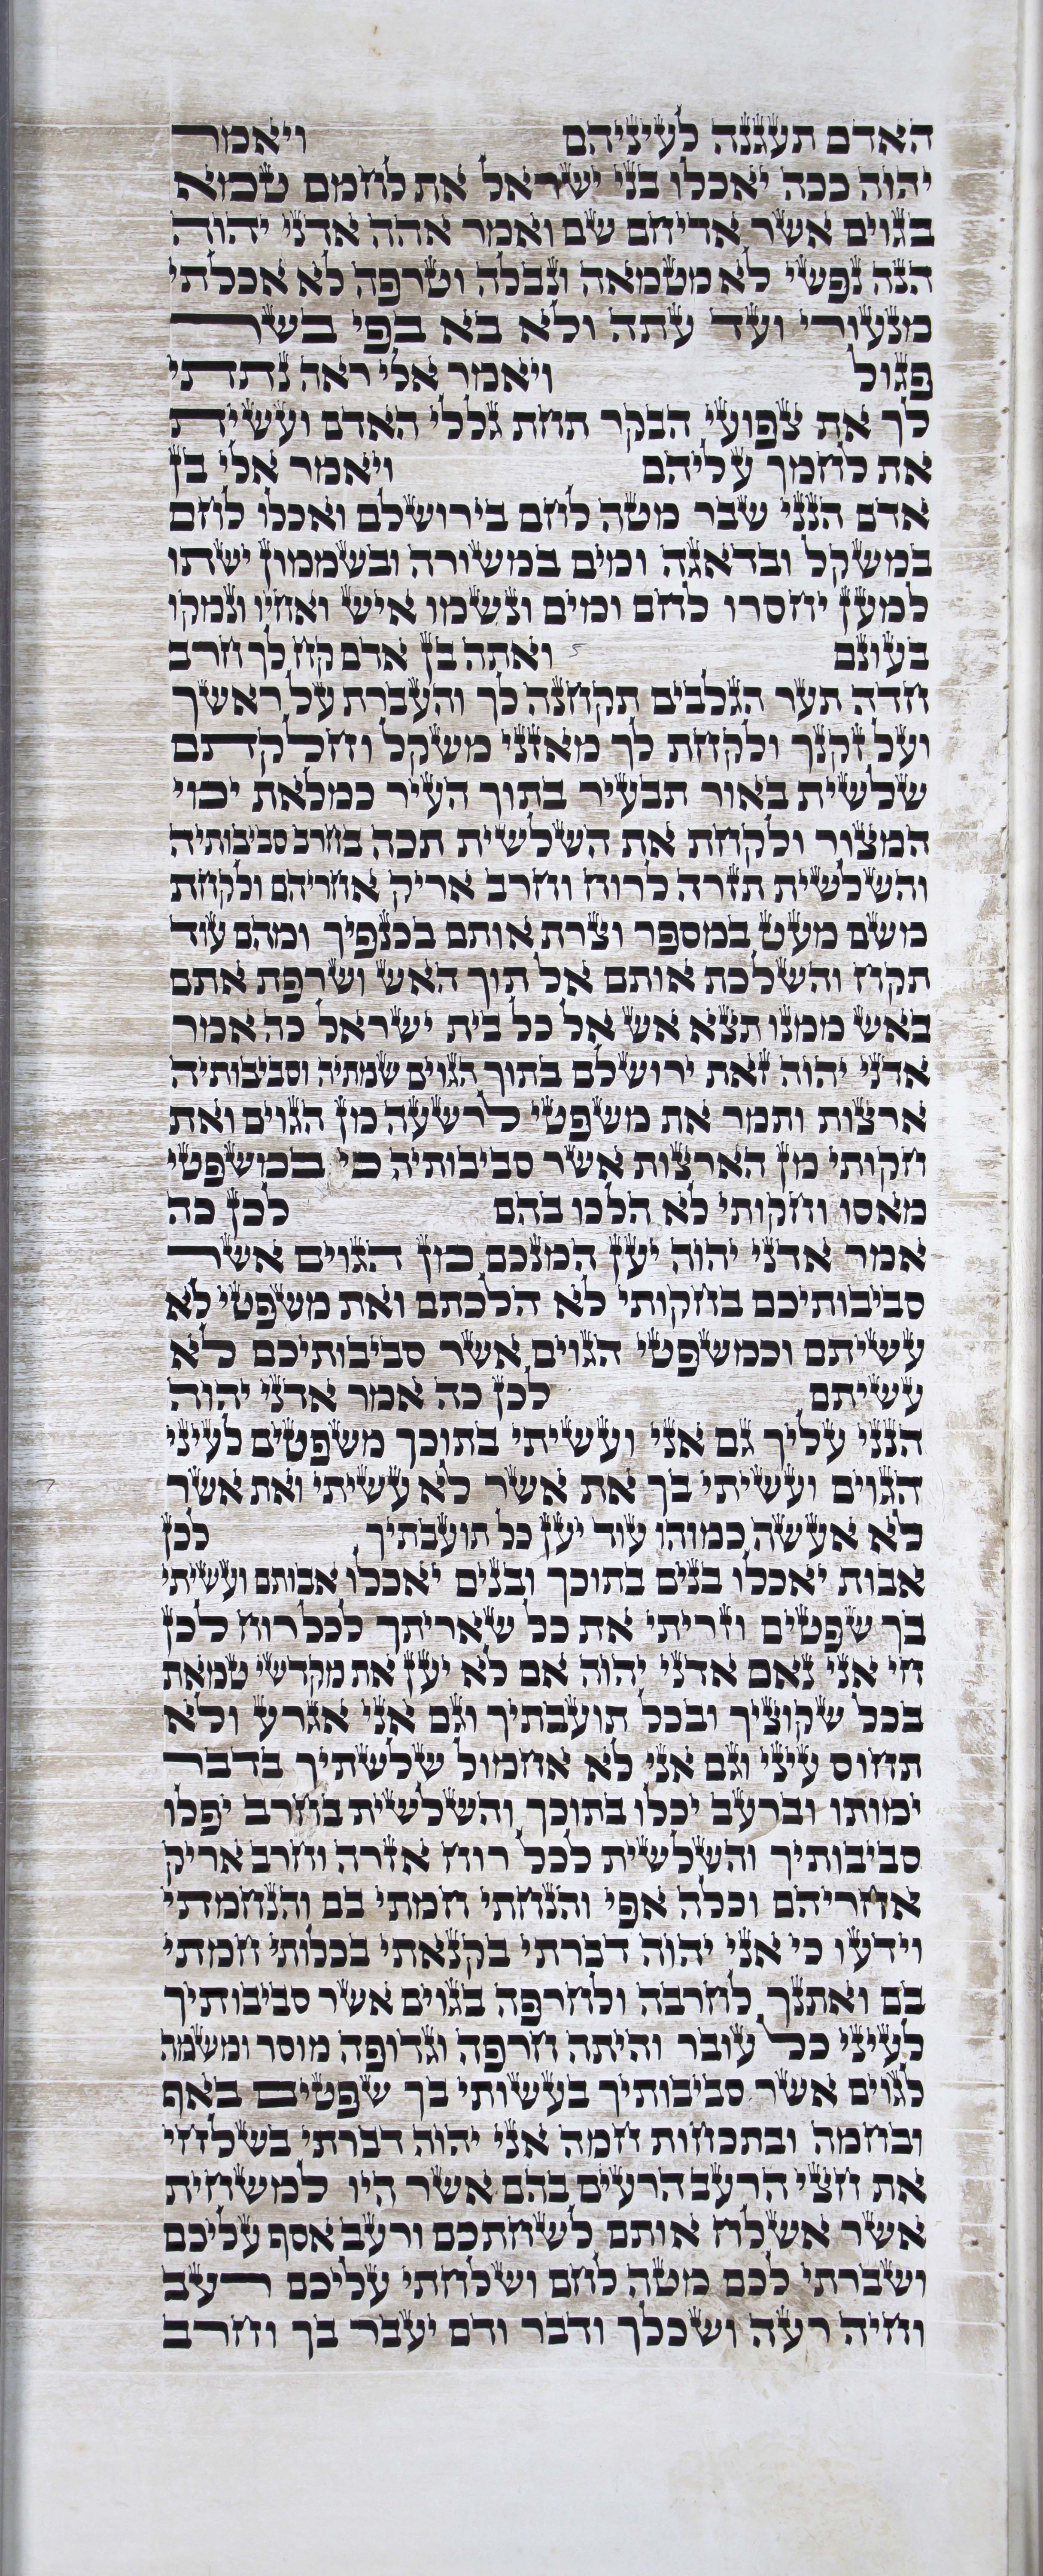 האדם תעגנה לעיניהם ויאמר
יהוה ככה יאכלו בני ישראל את לחמם טמא
בגוים אשר אדיחם שם ואמר אהה אדני יהוה
הנה נפשי לא מטמאה ונבלה וטרפה לא אכלתי
מנעורי ועד עתה ולא בא בפי בשר
פגול ויאמר אלי ראה נתתי
לך את צפועי הבקר תחת גללי האדם ועשית
את לחמך עליהם ויאמר אלי בן
אדם הנני שבר מטה לחם בירושלם ואכלו לחם
במשקל ובדאגה ומים במשורה ובשממון ישתו
למען יחסרו לחם ומים ונשמו איש ואחיו ונמקו
בעונם ואתה בן אדם קח לך חרב
חדה תער הגלבים תקחנה לך והעברת על ראשך
ועל זקנך ולקחת לך מאזני משקל וחלקתם
שלשית באור תבעיר בתוך העיר כמלאת ימי
המצור ולקחת את השלשית תכה בחרב סביבותיה
והשלשית תזרה לרוח וחרב אריק אחריהם ולקחת
משם מעט במספר וצרת אותם בכנפיך ומהם עוד
תקח והשלכת אותם אל תוך האש ושרפת אתם
באש ממנו תצא אש אל כל בית ישראל כה אמר
אדני יהוה זאת ירושלם בתוך הגוים שמתיה וסביבותיה
ארצות ותמר את משפטי לרשעה מן הגוים ואת
חקותי מן הארצות אשר סביבותיה כי במשפטי
מאסו וחקותי לא הלכו בהם לכן כה
אמר אדני יהוה יען המנכם מן הגוים אשר
סביבותיכם בחקותי לא הלכתם ואת משפטי לא
עשיתם וכמשפטי הגוים אשר סביבותיכם לא
עשיתם לכן כה אמר אדני יהוה
הנני עליך גם אני ועשיתי בתוכך משפטים לעיני
הגוים ועשיתי בך את אשר לא עשיתי ואת אשר
לא אעשה כמוהו עוד יען כל תועבתיך לכן
אבות יאכלו בנים בתוכך ובנים יאכלו אבותם ועשיתי
בך שפטים וזריתי את כל שאריתך לכל רוח לכן
חי אני נאם אדני יהוה אם לא יען את מקדשי טמאת
בכל שקוציך ובכל תועבתיך וגם אני אגרע ולא
תחוס עיני וגם אני לא אחמול שלשתיך בדבר
ימותו וברעב יכלו בתוכך והשלשית בחרב יפלו
סביבותיך והשלשית לכל רוח אזרה וחרב אריק
אחריהם וכלה אפי והנחתי חמתי בם והנחמתי
וידעו כי אני יהוה דברתי בקנאתי בכלותי חמתי
בם ואתנך לחרבה ולחרפה בגוים אשר סביבותיך
לעיני כל עובר והיתה חרפה וגדופה מוסר ומשמה
לגוים אשר סביבותיך בעשותי בך שפטים באף
ובחמה ובתכחות חמה אני יהוה דברתי בשלחי
את חצי הרעב הרעים בהם אשר היו למשחית
אשר אשלח אותם לשחתכם ורעב אסף עליכם
ושברתי לכם מטה לחם ושלחתי עליכם רעב
וחיה רעה ושכלך ודבר ודם יעבר בך וחרב